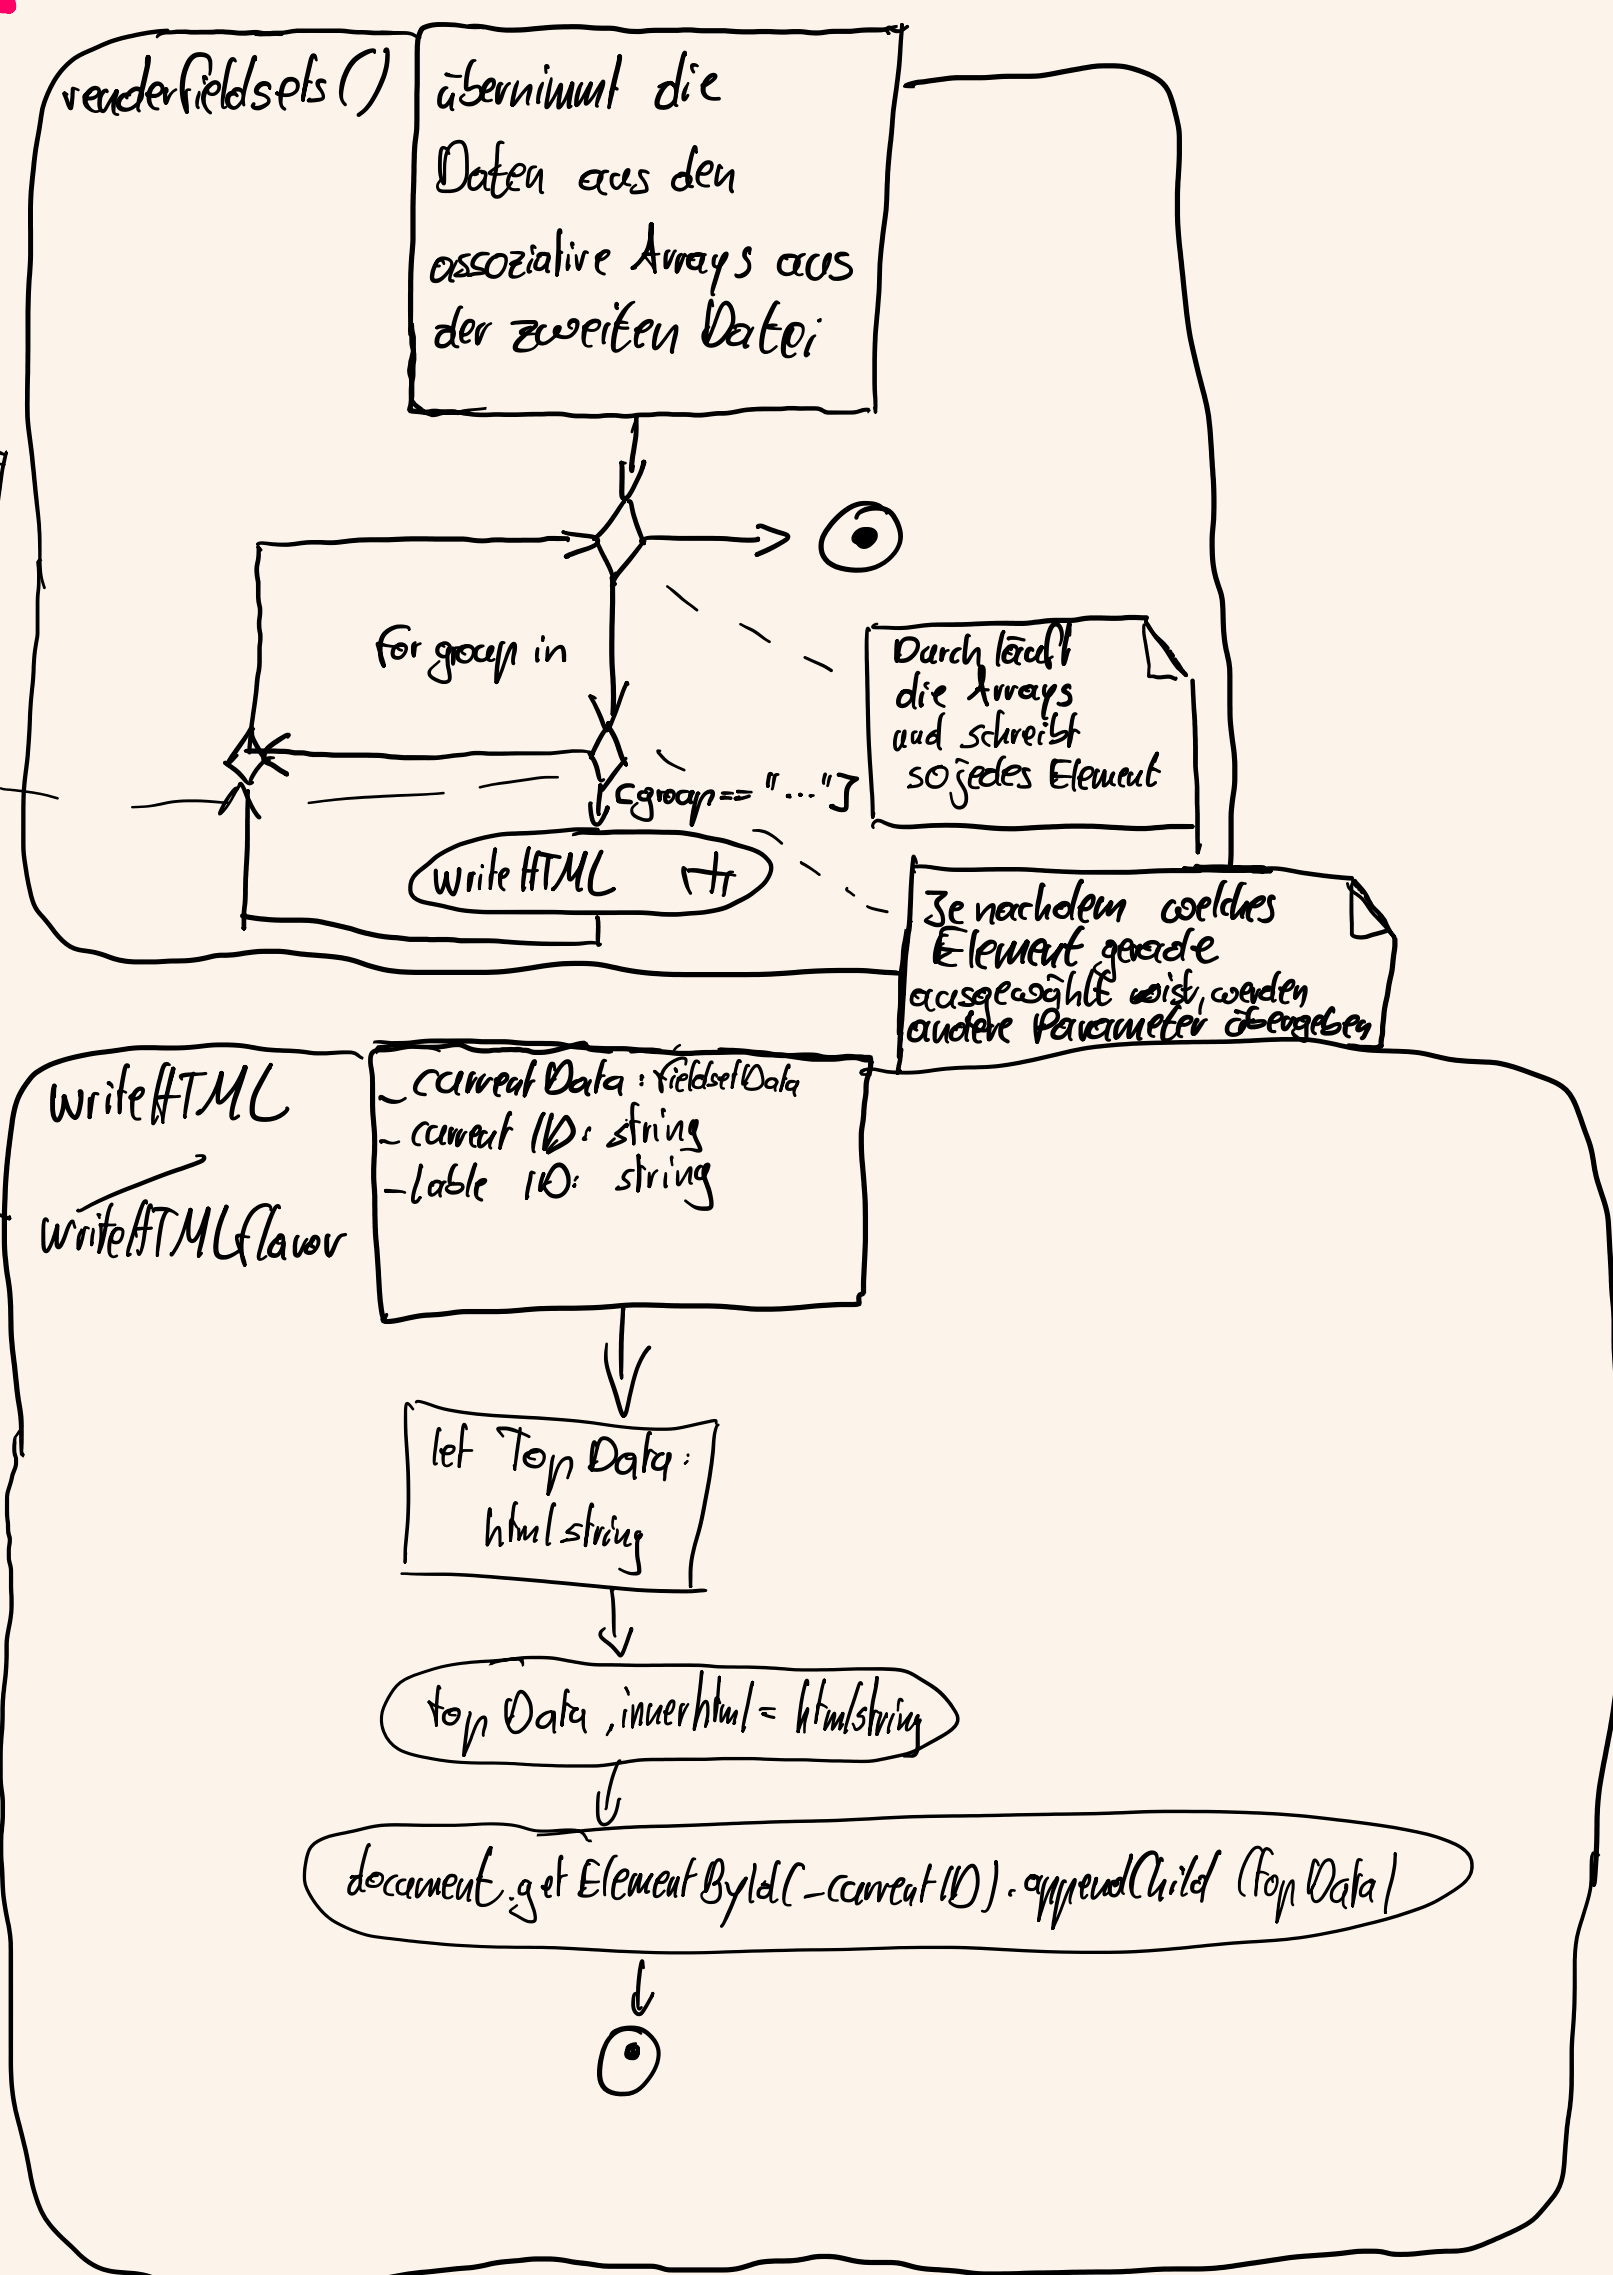 renderfieldsets()
übernimmt die
Daten aus den
assoziative Arrays aus
der zweiten Datei
for group in
Durchläuft
die Arrays
und schreibt
so jedes Element
[group == "..."]
writeHTML
Je nachdem welches
Element gerade
ausgewählt ist, werden
andere Parameter übergeben
writeHTML
writeHTMLflavor
_currentData: fieldsetData
_currentID: string
_lableID: string
let TopData:
htmlstring
topData.innerhtml = htmlstring
document.getElementById(_currentID).appendChild(topData)